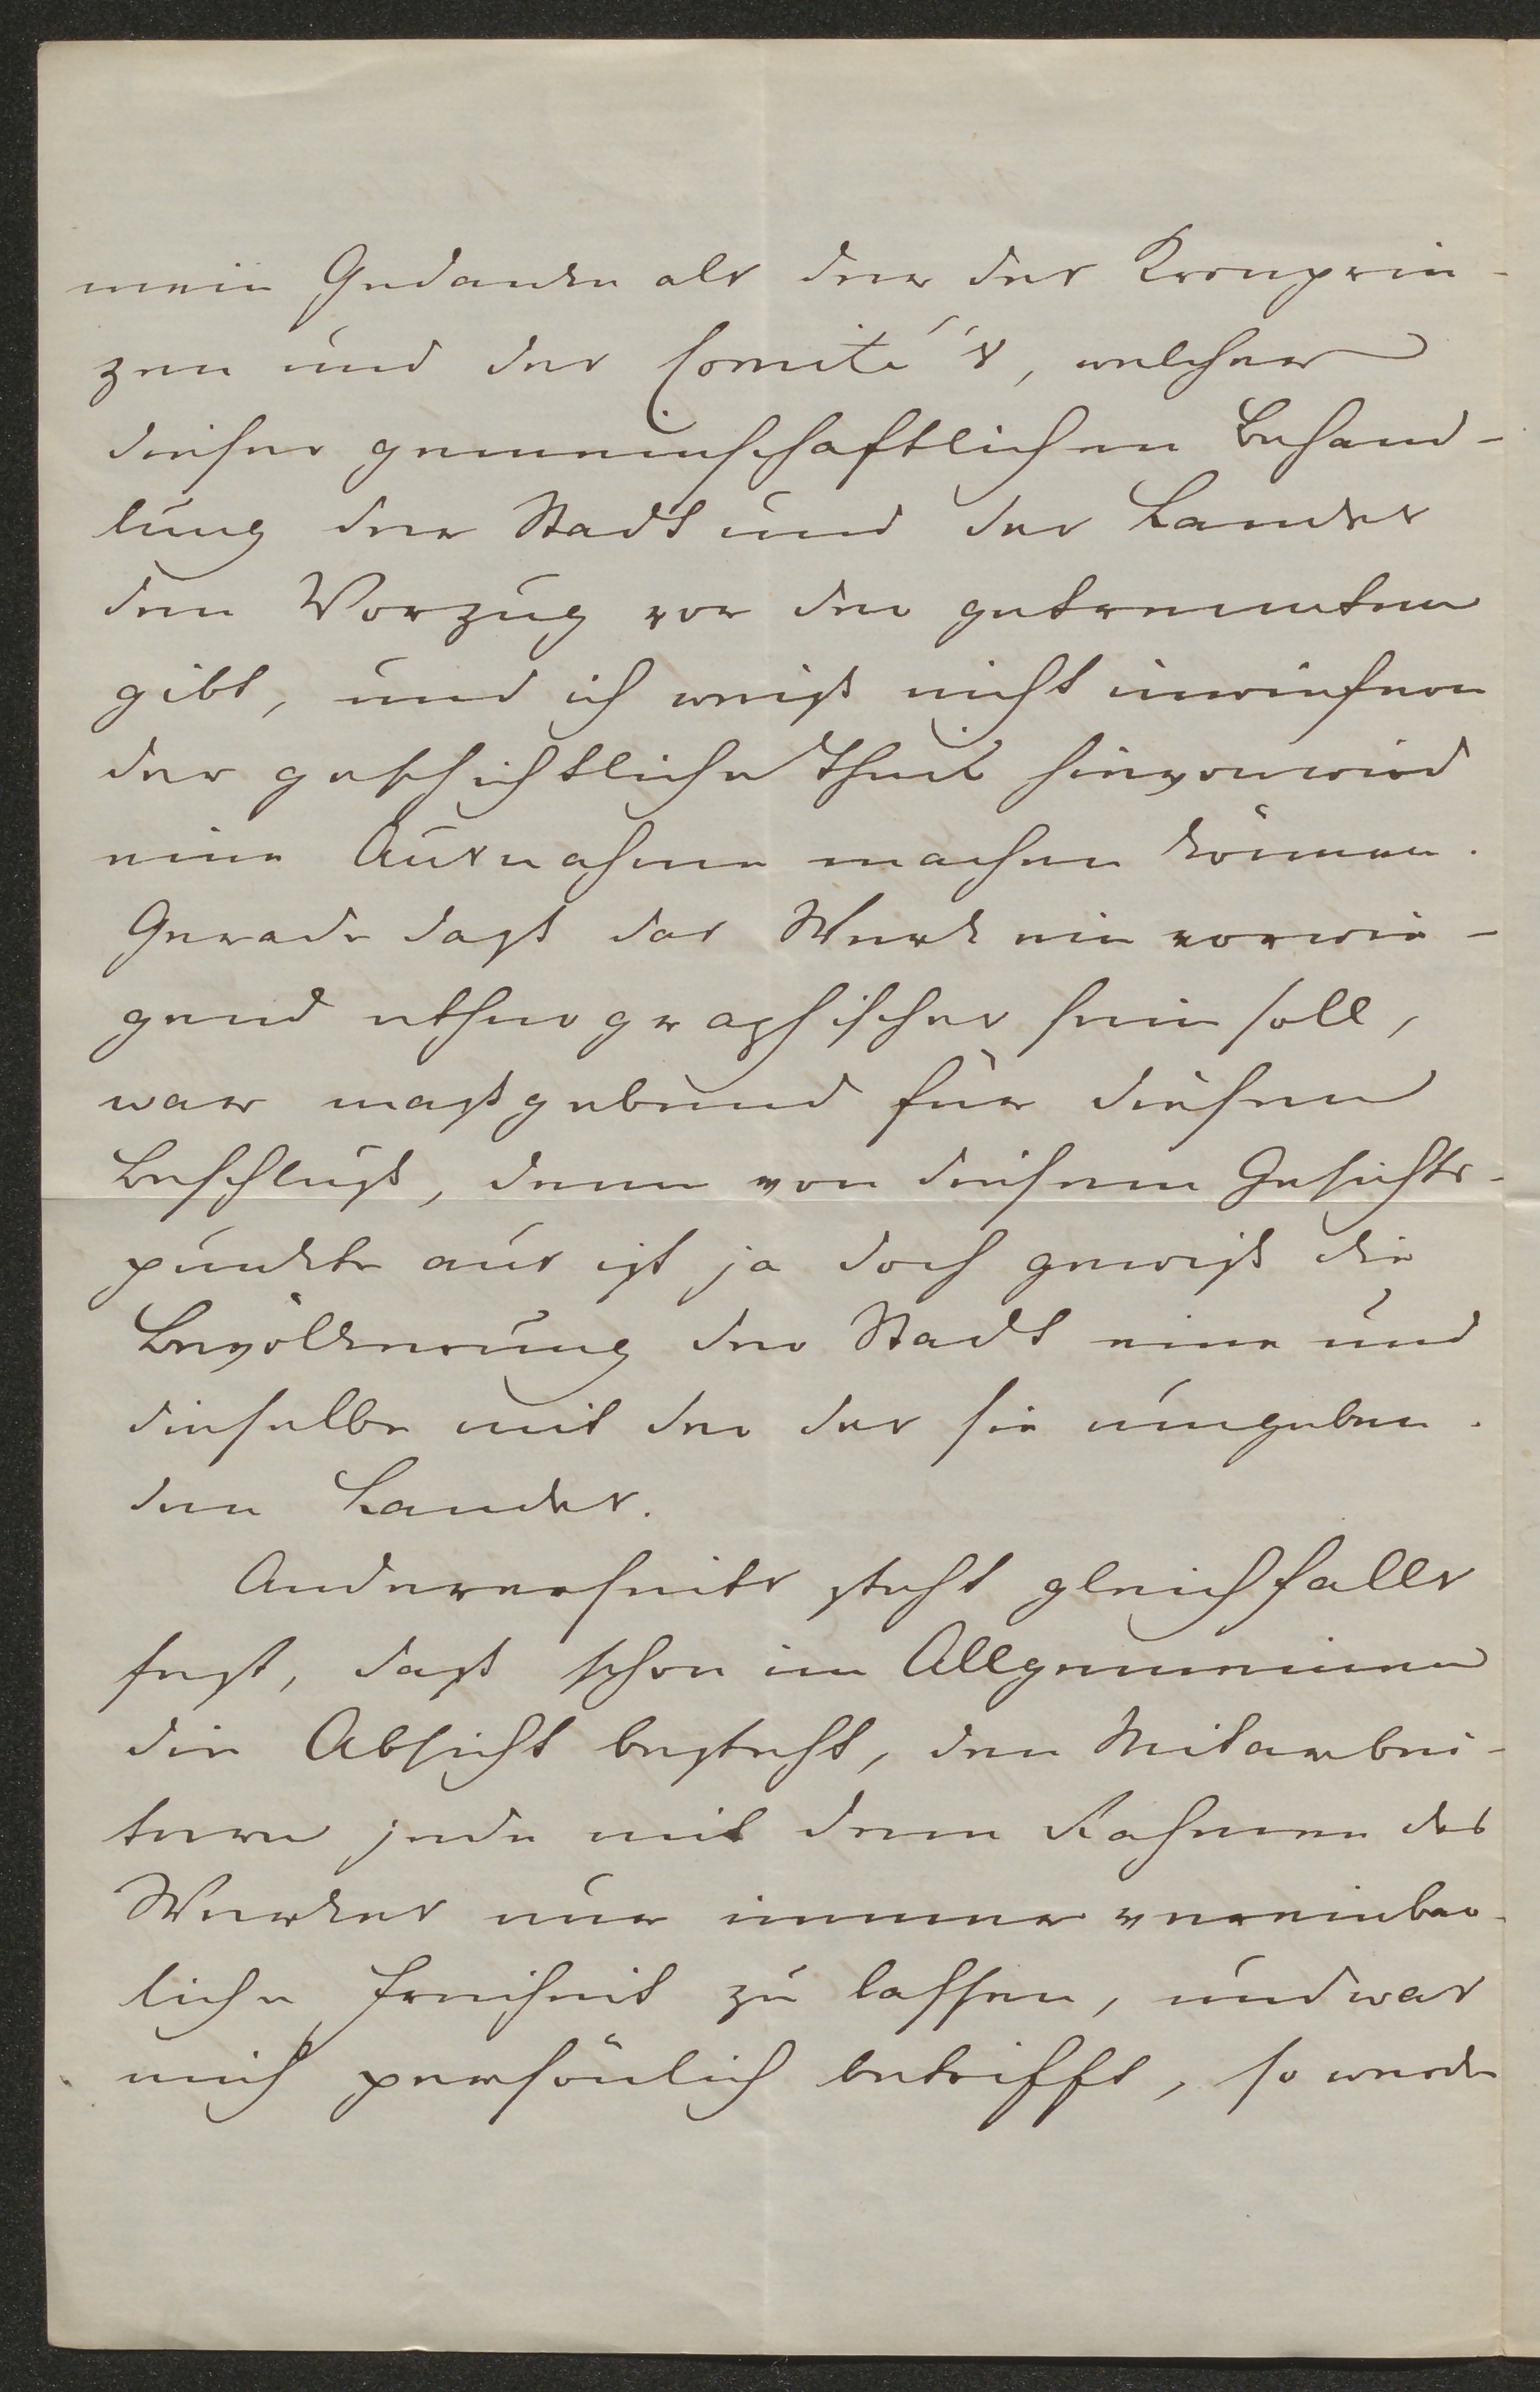 mein Gedanke als der des Kronprin-
zen und des Comité's, welcher
dieser gemeinschaftlichen Behand-
lung der Stadt und des Landes
den Vorzug vor der getrennten
gibt, und ich weiß nicht inwiefern
der geschichtliche Theil hievon wird
eine Ausnahme machen können.
Gerade daß das Werk ein vorwie-
gend ethnographisches sein soll,
war maßgebend für diesen
Beschluß, denn von diesem Gesichts-
punkte aus ist ja doch gewiß die
Bevölkerung der Stadt eine und
dieselbe mit der des sie umgeben-
den Landes.
Andererseits steht gleichfalls
fest, daß schon im Allgemeinen
die Absicht besteht, den Mitarbei-
tern jede mit dem Rahmen des
Werkes nur immer vereinbar-
liche Freiheit zu lassen, und was
mich persönlich betrifft, so werde